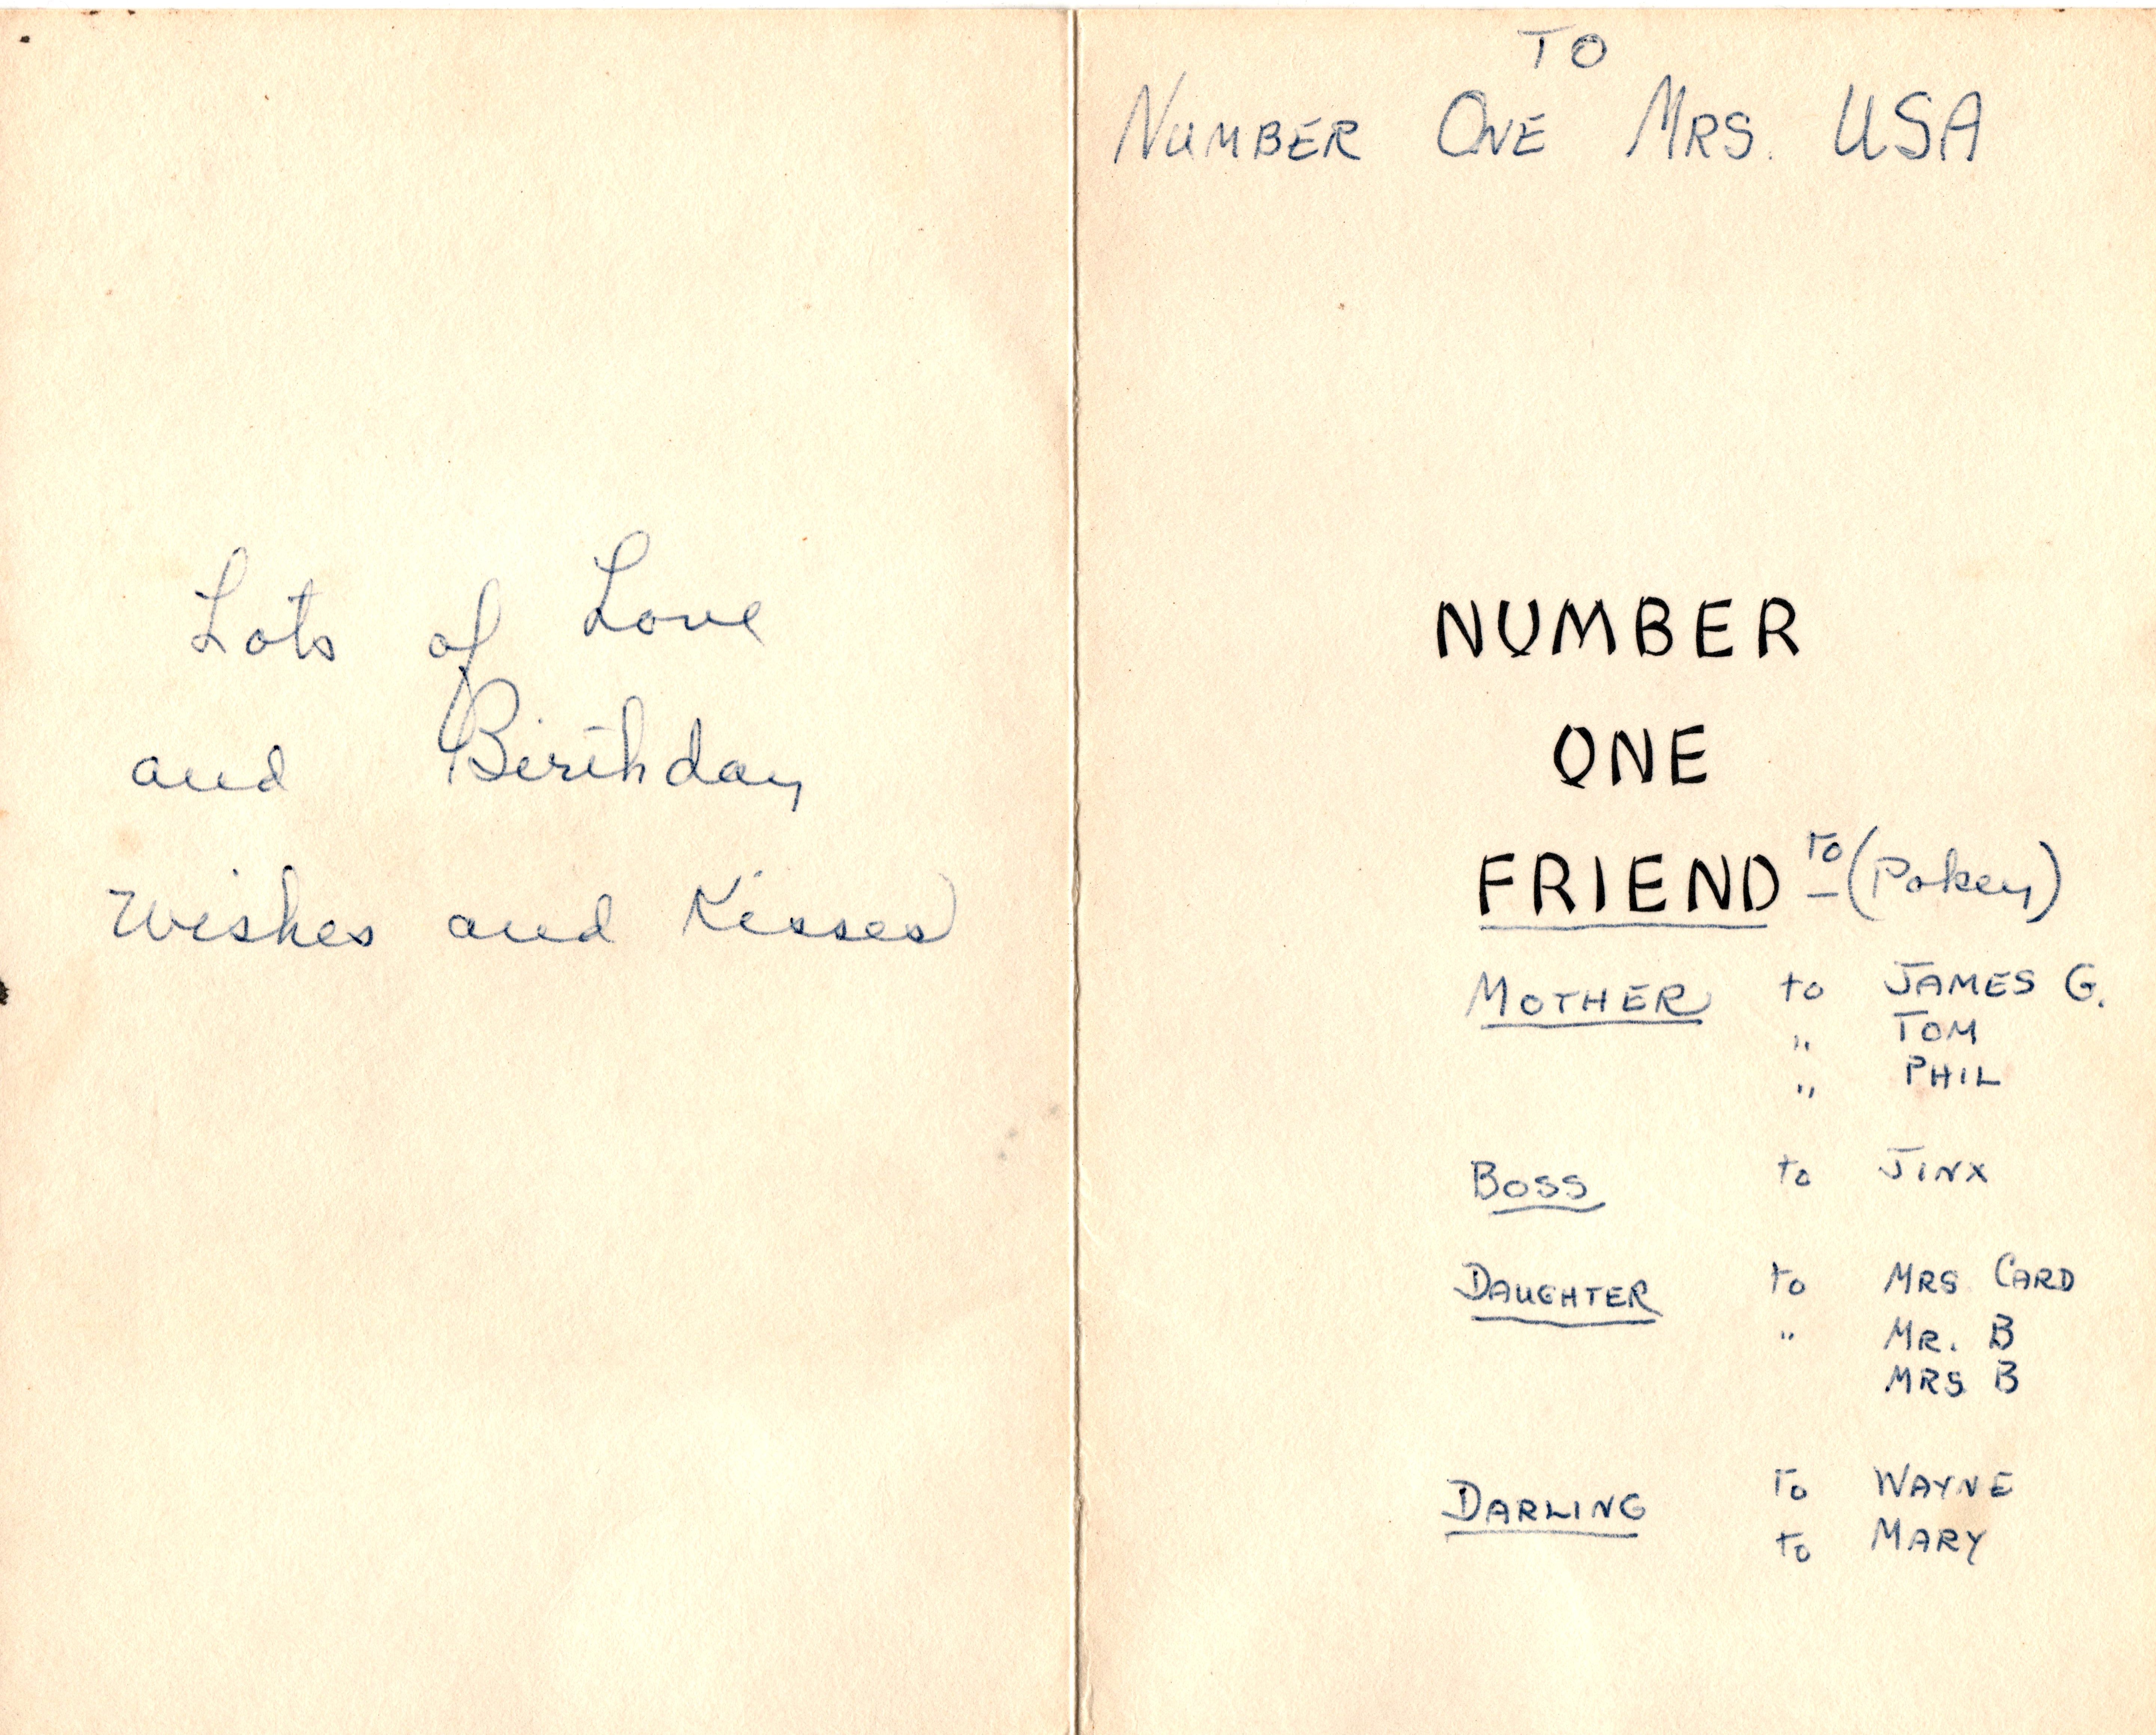 Lots of Love
and Birthday
Wishes and Kisses
TO
NUMBER ONE MRS. USA
NUMBER
ONE
FRIEND TO (Pokey)
MOTHER to JAMES G.
" TOM
" PHIL
BOSS to JINX
DAUGHTER to MRS CARD
" MR. B
MRS B
DARLING To WAYNE
to MARY